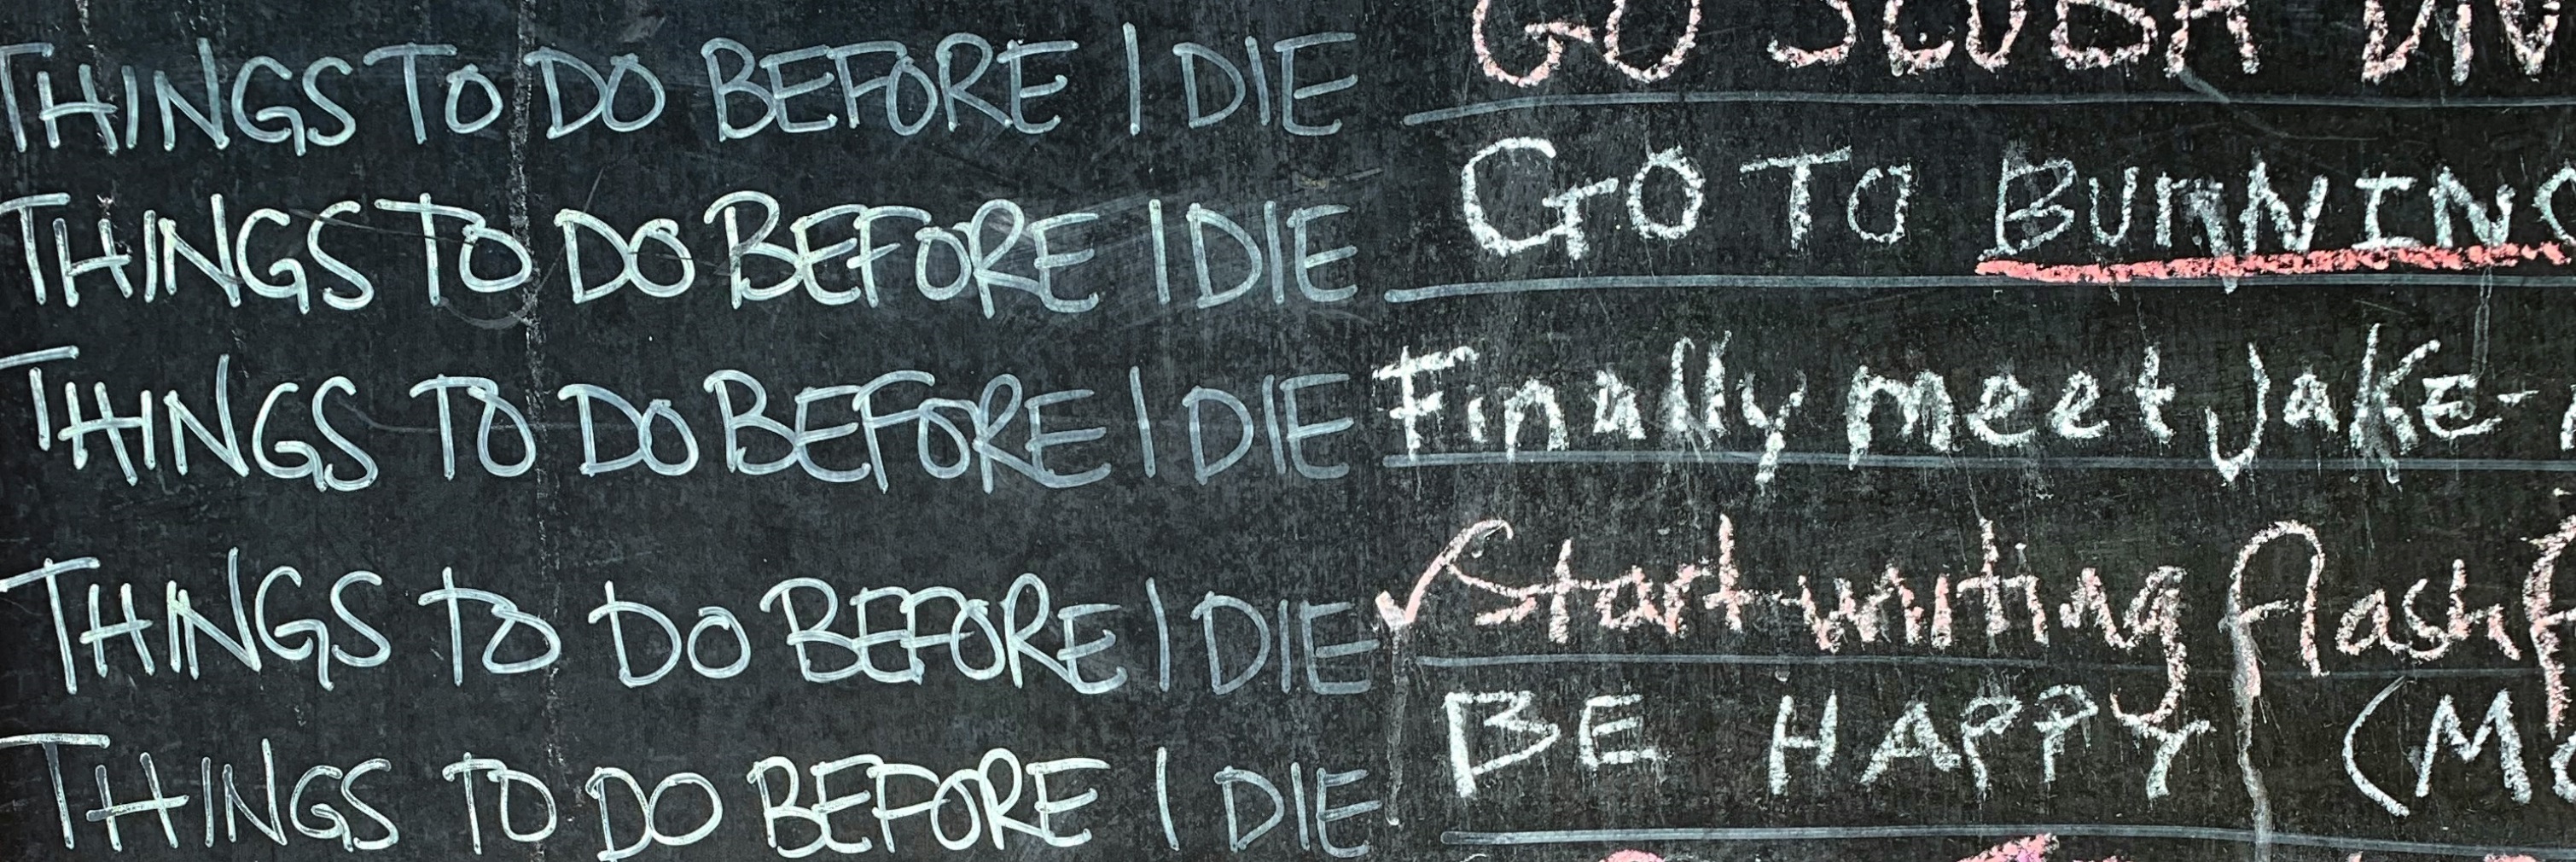 THINGS TO DO BEFORE I DIE GO SCUBA DIV
THINGS TO DO BEFORE I DIE GO TO BURNING
THINGS TO DO BEFORE I DIE Finally meet Jake-
THINGS TO DO BEFORE I DIE ✓ Start writing flash f
THINGS TO DO BEFORE I DIE BE HAPPY (Mo